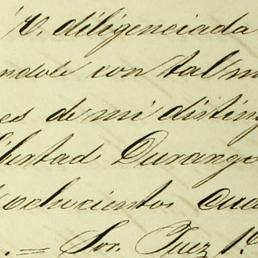 V. diligenciada
ndole con tal m
es de mi disting
libertad Durango
ochocientos cua
. = Sor. Juez 1.º